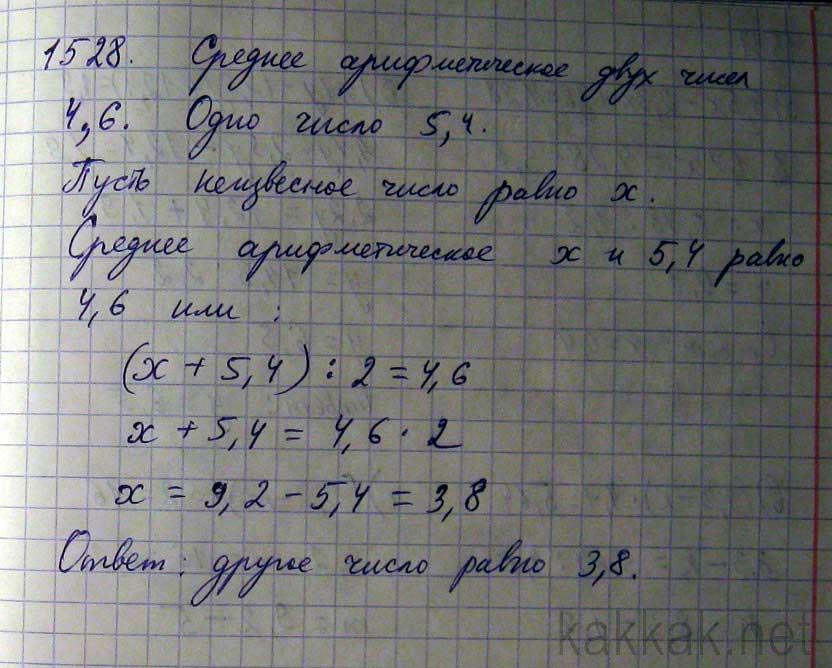 1528. Среднее арифметическое двух чисел
4,6. Одно число 5,4.
Пусть неизвесное число равно x.
Среднее арифметическое x и 5,4 равно
4,6 или :
(x + 5,4) : 2 = 4,6
x + 5,4 = 4,6 · 2
x = 9,2 - 5,4 = 3,8
Ответ: другое число равно 3,8.
kakkak.net